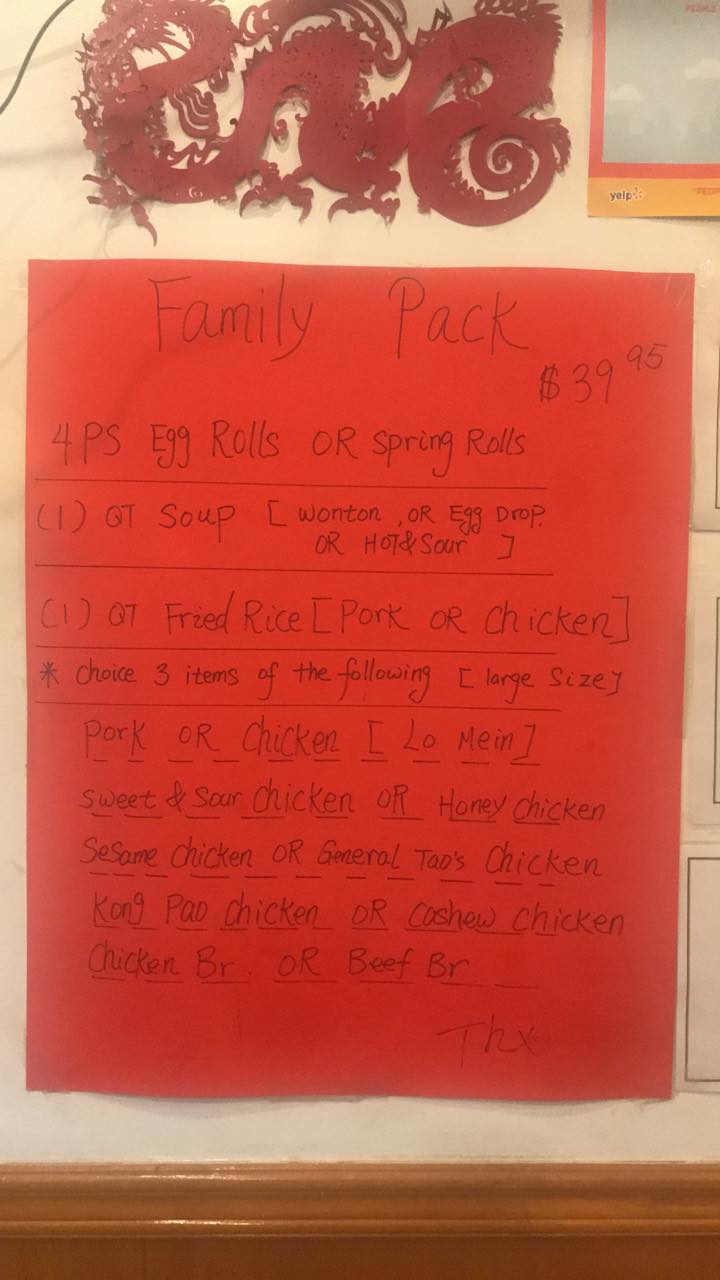 PEOPLE
yelp
"PEOP
Family Pack
$39 95
4PS Egg Rolls OR Spring Rolls
(1) QT Soup [ Wonton , OR Egg Drop.
OR HOT & Sour ]
(1) QT Fried Rice [Pork OR Chicken]
* Choice 3 items of the following [ large Size]
Pork OR Chicken [ Lo Mein ]
Sweet & Sour Chicken OR Honey Chicken
Sesame Chicken OR General Tao's Chicken
Kong Pao Chicken OR Cashew Chicken
Chicken Br. OR Beef Br
Thx